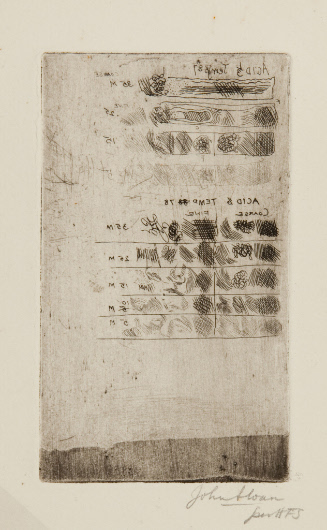 ACID & TEMP 87
35 M
25
15
ACID & TEMP 78
COARSE FINE
35 M
25 M
15 M
10 M
5 M
John Sloan
per HFS